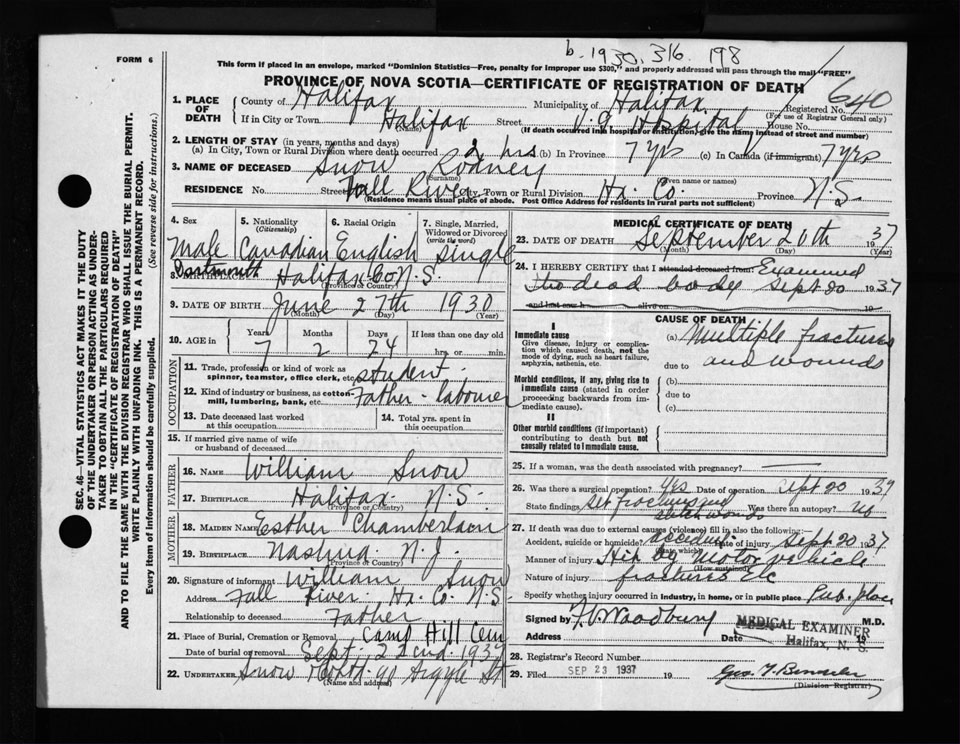 b. 1930. 316 198
FORM 6
This form if placed in an envelope, marked "Dominion Statistics—Free, penalty for improper use $300," and properly addressed will pass through the mail "FREE"
PROVINCE OF NOVA SCOTIA—CERTIFICATE OF REGISTRATION OF DEATH
640
1. PLACE OF DEATH
County of Halifax Municipality of Halifax Registered No.
(For use of Registrar General only)
If in City or Town Halifax Street V.G Hospital House No.
(Name) (If death occurred in a hospital or institution, give the name instead of street and number)
2. LENGTH OF STAY (in years, months and days)
(a) In City, Town or Rural Division where death occurred 2 hrs (b) In Province 7 yrs (c) In Canada (if immigrant) 7 yrs
3. NAME OF DECEASED Snow Rodney
(Surname) (Given name or names)
RESIDENCE No. Street Fall River City, Town or Rural Division Hx. Co. Province N.S.
(Residence means usual place of abode. Post Office Address for residents in rural parts not sufficient)
4. Sex 5. Nationality (Citizenship) 6. Racial Origin 7. Single, Married, Widowed or Divorced (write the word)
Male Canadian English Single
8. BIRTHPLACE Dartmouth Halifax Co N.S.
(Province or Country)
9. DATE OF BIRTH June 27th 1930
(Month) (Day) (Year)
10. AGE in Years Months Days If less than one day old
7 2 24 hrs. or min.
OCCUPATION
11. Trade, profession or kind of work as spinner, teamster, office clerk, etc. Student
12. Kind of industry or business, as cotton-mill, lumbering, bank, etc. Father - labourer
13. Date deceased last worked at this occupation
14. Total yrs. spent in this occupation
15. If married give name of wife or husband of deceased
FATHER
16. NAME William Snow
17. BIRTHPLACE Halifax N.S.
(Province or Country)
MOTHER
18. MAIDEN NAME Esther Chamberlain
19. BIRTHPLACE Nashua N.J.
(Province or Country)
20. Signature of informant William Snow
Address Fall River Hx. Co. N.S.
Relationship to deceased Father
21. Place of Burial, Cremation or Removal Camp Hill Cem
Date of burial or removal Sept. 22nd. 1937
22. UNDERTAKER Snow 90 Argyle St
(Name and address)
MEDICAL CERTIFICATE OF DEATH
23. DATE OF DEATH September 20th 1937
(Month) (Day) (Year)
24. I HEREBY CERTIFY that I attended deceased from: Examined
the dead body Sept 20 1937
and last saw h alive on
CAUSE OF DEATH
I
Immediate cause
Give disease, injury or complication which caused death, not the mode of dying, such as heart failure, asphyxia, asthenia, etc.
(a) Multiple fractures
due to and wounds
Morbid conditions, if any, giving rise to immediate cause (stated in order proceeding backwards from immediate cause).
(b)
due to
(c)
II
Other morbid conditions (if important) contributing to death but not causally related to immediate cause.
25. If a woman, was the death associated with pregnancy?
26. Was there a surgical operation? Yes Date of operation Sept 20 1937
State findings Set fractures and stitch wounds Was there an autopsy? No
27. If death was due to external causes (violence) fill in also the following:—
Accident, suicide or homicide? accident Date of injury Sept. 20 1937
(State which)
Manner of injury Hit by Motor vehicle
(How sustained)
Nature of injury fractures Etc
Specify whether injury occurred in industry, in home, or in public place Pub. place
Signed by F.V. Woodbury M.D.
Address Date 19
MEDICAL EXAMINER
Halifax, N. S.
28. Registrar's Record Number
29. Filed SEP 23 1937 19
(Division Registrar)
SEC. 46—VITAL STATISTICS ACT MAKES IT THE DUTY
OF THE UNDERTAKER OR PERSON ACTING AS UNDERTAKER
TO OBTAIN ALL THE PARTICULARS REQUIRED
IN THE "CERTIFICATE OF REGISTRATION OF DEATH"
AND TO FILE THE SAME WITH THE DIVISION REGISTRAR WHO SHALL ISSUE THE BURIAL PERMIT.
WRITE PLAINLY WITH UNFADING INK. THIS IS A PERMANENT RECORD.
Every item of information should be carefully supplied. (See reverse side for instructions.)